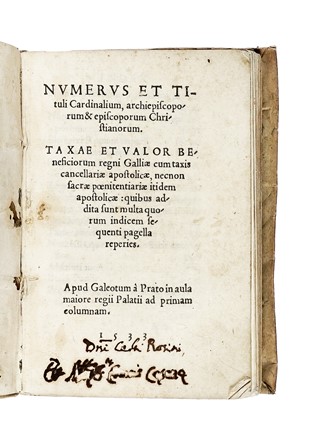 NVMERVS ET TI-
tuli Cardinalium, archiepiscopo-
rum & episcoporum Chri-
stianorum.
TAXAE ET VALOR BE-
neficiorum regni Galliæ cum taxis
cancellariæ apostolicæ, necnon
sacræ pœnitentiariæ itidem
apostolicæ : quibus ad-
dita sunt multa quo-
rum indicem se-
quenti pagella
reperies.
Apud Galeotum à Prato in aula
maiore regii Palatii ad primam
columnam.
1533